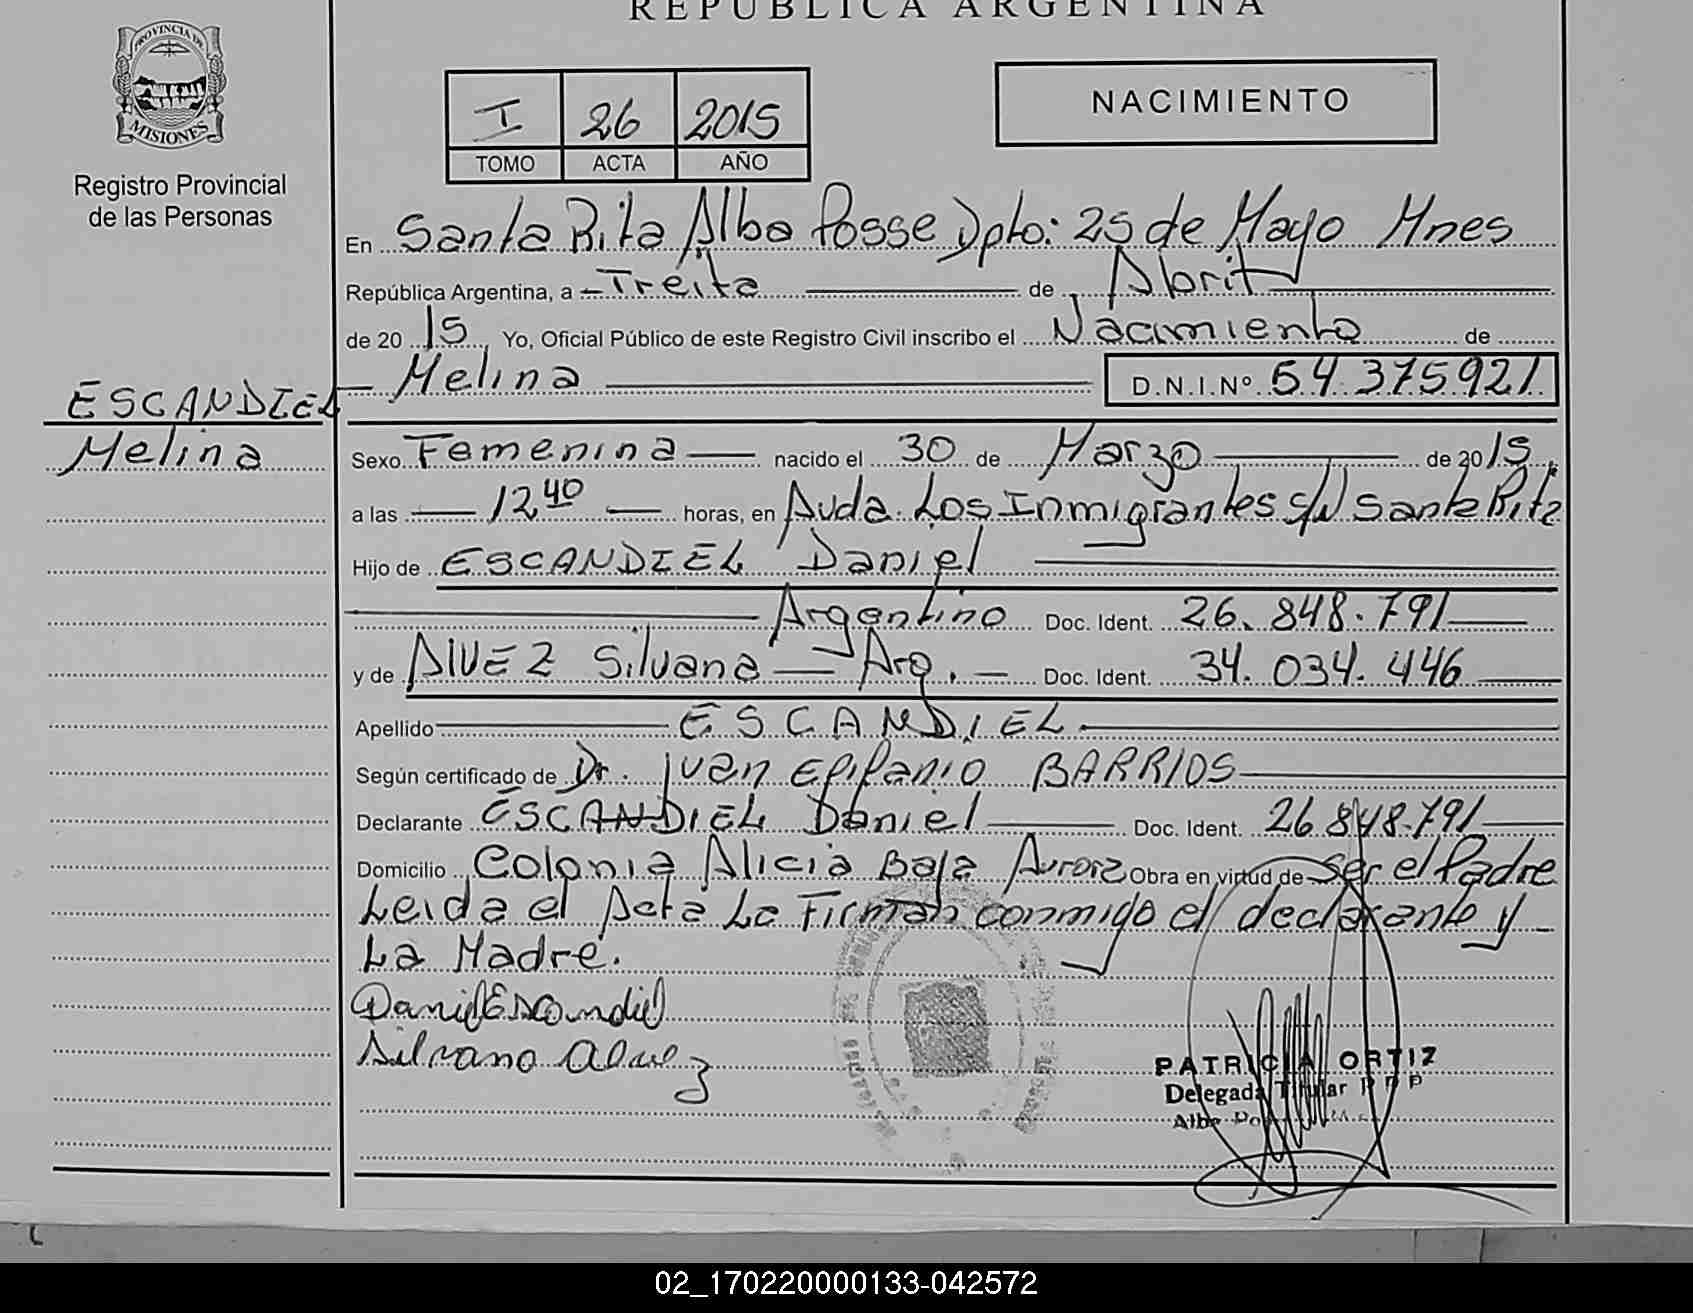 REPÚBLICA ARGENTINA
PROVINCIA DE
MISIONES
Registro Provincial
de las Personas
I 26 2015
TOMO ACTA AÑO
NACIMIENTO
En Santa Rita Alba Posse Dpto: 25 de Mayo Mnes
República Argentina, a Treita de Abril
de 2015, Yo, Oficial Público de este Registro Civil inscribo el Nacimiento de
Melina D.N.I.Nº 54.375.921
ESCANDIEL
Melina
Sexo Femenina nacido el 30 de Marzo de 2015,
a las 12 40 horas, en Avda. Los Inmigrantes s/N Santa Rita
Hijo de ESCANDIEL Daniel
Argentino Doc. Ident. 26.848.791
y de ALVEZ Silvana Arg. Doc. Ident. 34.034.446
Apellido ESCANDIEL
Según certificado de Dr. Juan Epifanio BARRIOS
Declarante ESCANDIEL Daniel Doc. Ident. 26.848.791
Domicilio Colonia Alicia Baja Aurora Obra en virtud de ser el Padre
Leida el Acta La Firman conmigo el declarante y
La Madre.
Daniel Escandiel
Silvana Alvez
PATRICIA ORTIZ
Delegada Titular
Alba
02_170220000133-042572